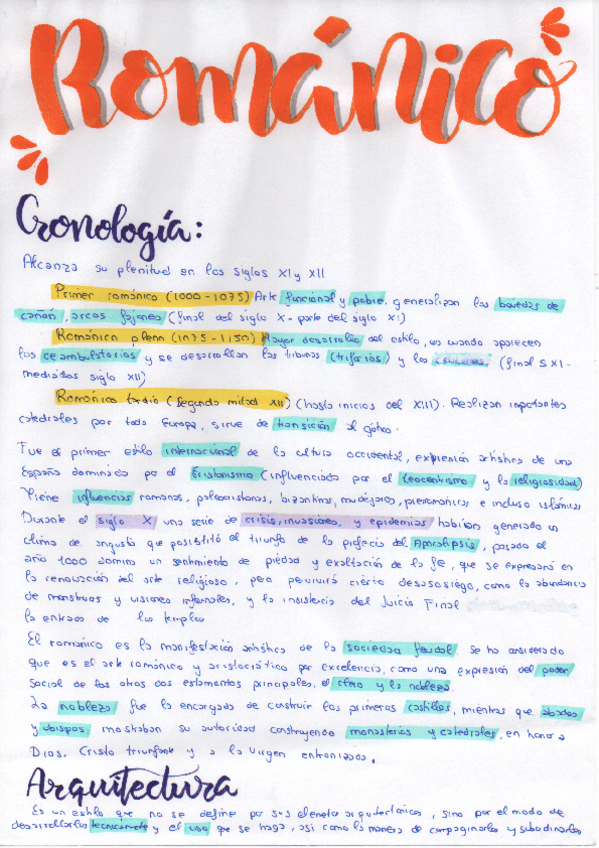 Románico
Cronología:
Alcanza su plenitud en los siglos XI y XII
Primer románico (1000-1075) Arte funcional y pobre. generalizan las bóvedas de
cañón, arcos fajones (final del siglo X - parte del siglo XI)
Románico pleno (1075-1150) Mayor desarrollo del estilo, es cuando aparecen
las deambulatorios y se desarrollan las tribunas (triforios) y los (final S XI-
mediados siglo XII)
Románico tardío (segunda mitad XII) (hasta inicios del XIII). Realizan importantes
catedrales por toda Europa, sirve de transición al gótico.
Fue el primer estilo internacional de la cultura occidental, expresión artística de una
España dominada por el Cristianismo (influenciada por el teocentrismo y la religiosidad)
Tiene influencias romanas, paleocristianas, bizantinas, mudéjares, prerrománicas e incluso islámicas
Durante el siglo X una serie de crisis, invasiones, y epidemias habían generado un
clima de angustia que posibilitó el triunfo de la profecía del Apocalipsis, pasado el
año 1000 domina un sentimiento de piedad y exaltación de la fe, que se expresará en
la renovación del arte religioso, pero pervivirá cierto desasosiego, como la abundancia
de monstruos y visiones infernales, y la insistencia del Juicio Final
la entrada de los templos
El románico es la manifestación artística de la sociedad feudal se ha considerado
que es el arte románico y aristocrático por excelencia, como una expresión del poder
social de los otros dos estamentos principales, el clero y la nobleza.
La nobleza fue la encargada de construir los primeros castillos, mientras que abades
y obispos mostraban su autoridad construyendo monasterios y catedrales, en honor a
Dios, Cristo triunfante y a la Virgen entronizada.
Arquitectura
Es un estilo que no se define por sus elemetos arquitectónicos, sino por el modo de
desarrollarlos técnicamente y el uso que se haga, así como la manera de compaginarlos y subordinarlos